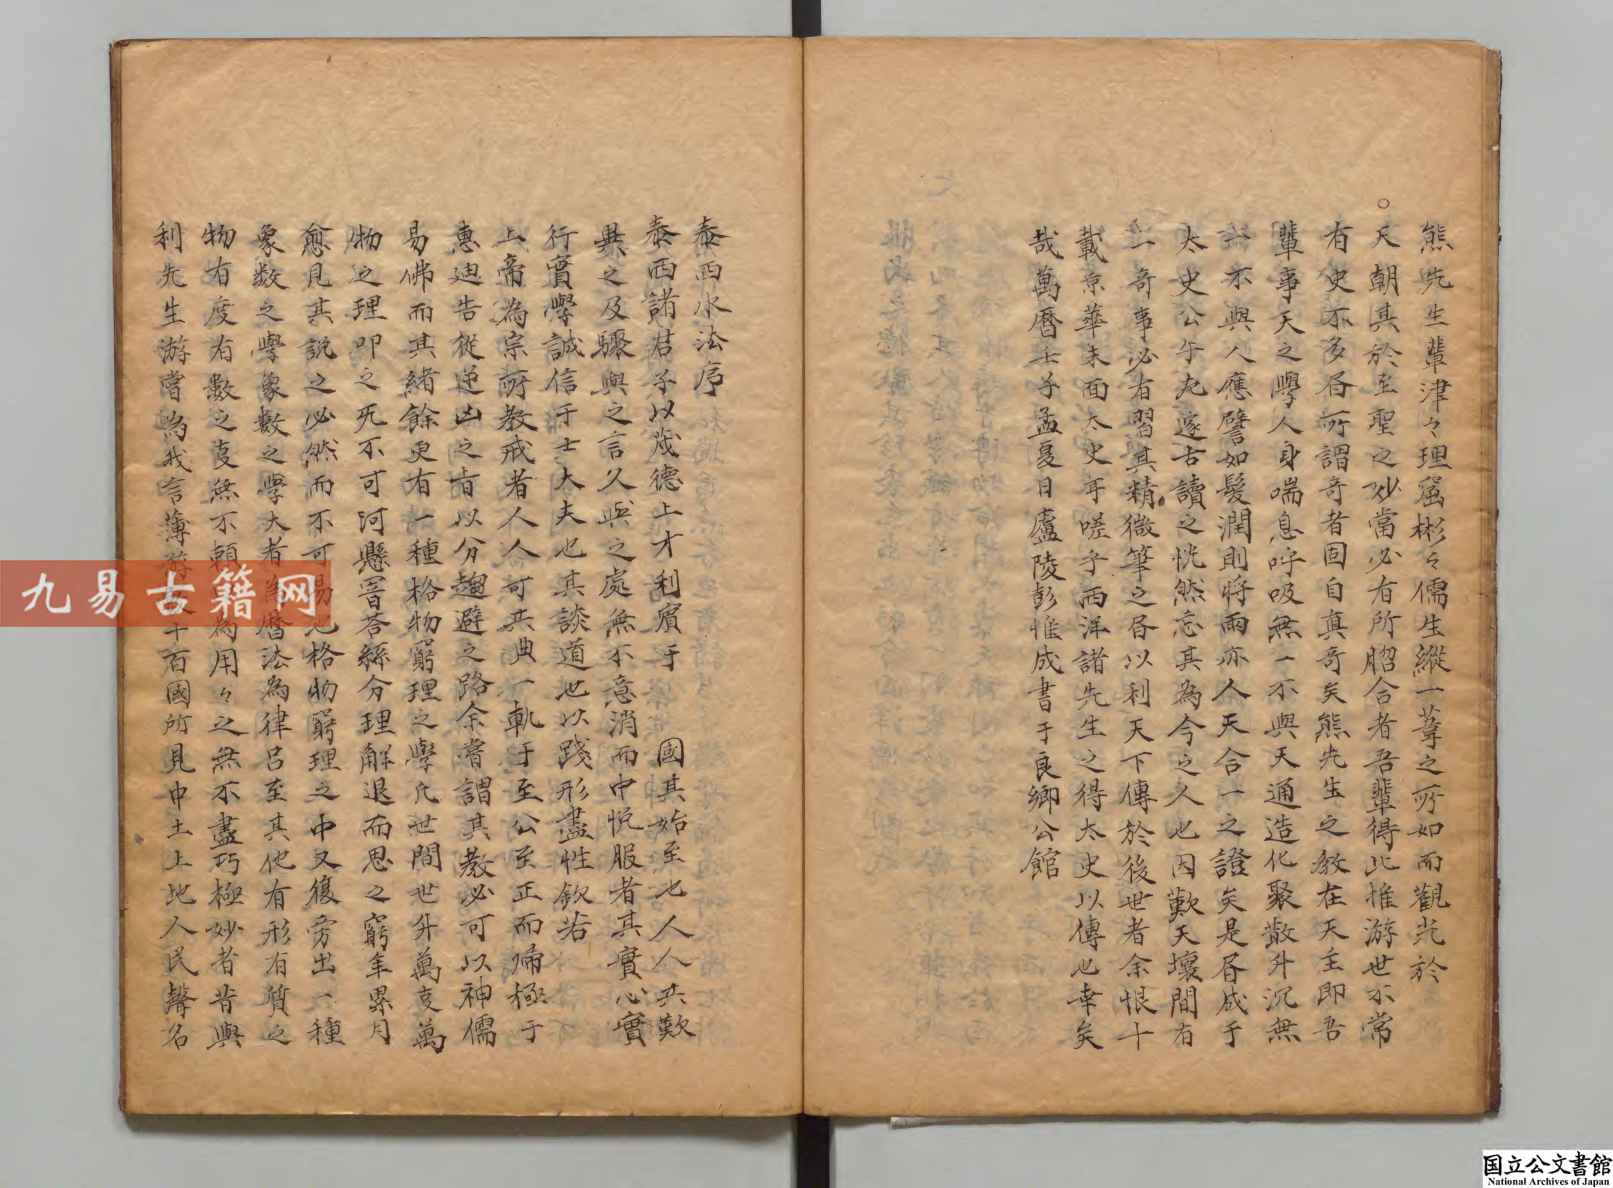 熊先生輩津々理窟彬々儒生縱一葦之所如而觀光於
天朝其於至聖之妙當必有所脗合者吾輩得此推游世不常
有史不多書所謂奇者固自真奇矣熊先生之教在天主即吾
輩事天之學人身喘息呼吸無一不與天通造化聚散升沉無
一不與人應譬如髮潤則將雨亦人天合一之證矣是書成于
太史公午夜篝古讀之恍然忘其為今之人也因歎天壤間有
一奇事必有習其精微筆之書以利天下傳於後世者余恨十
載京華未面太史耳嗟乎西洋諸先生之得太史以傳也幸矣
哉萬曆壬子孟夏日廬陵彭惟成書于良鄉公館
泰西水法序
泰西諸君子以茂德上才利賓于 國其始至也人人共歎
異之及驟與之言久與之處無不意消而中悅服者其實心實
行實學誠信于士大夫也其談道也以踐形盡性欽若
上帝為宗所教戒者人人可共由一軌于至公至正而歸極于
惠迪吉從逆凶之旨以分趨避之路余嘗謂其教必可以補儒
易佛而其緒餘更有一種格物窮理之學凡世間世外萬事萬
物之理叩之無不河懸響答絲分理解退而思之窮年累月
愈見其說之必然而不可易也格物窮理之中又復旁出一種
象數之學象數之學大者為曆法為律呂至其他有形有質之
物有度有數之事無不賴為用々之無不盡巧極妙者昔與
利先生游嘗為我言薄游十百國所見中土土地人民聲名
九易古籍网
国立公文書館
National Archives of Japan